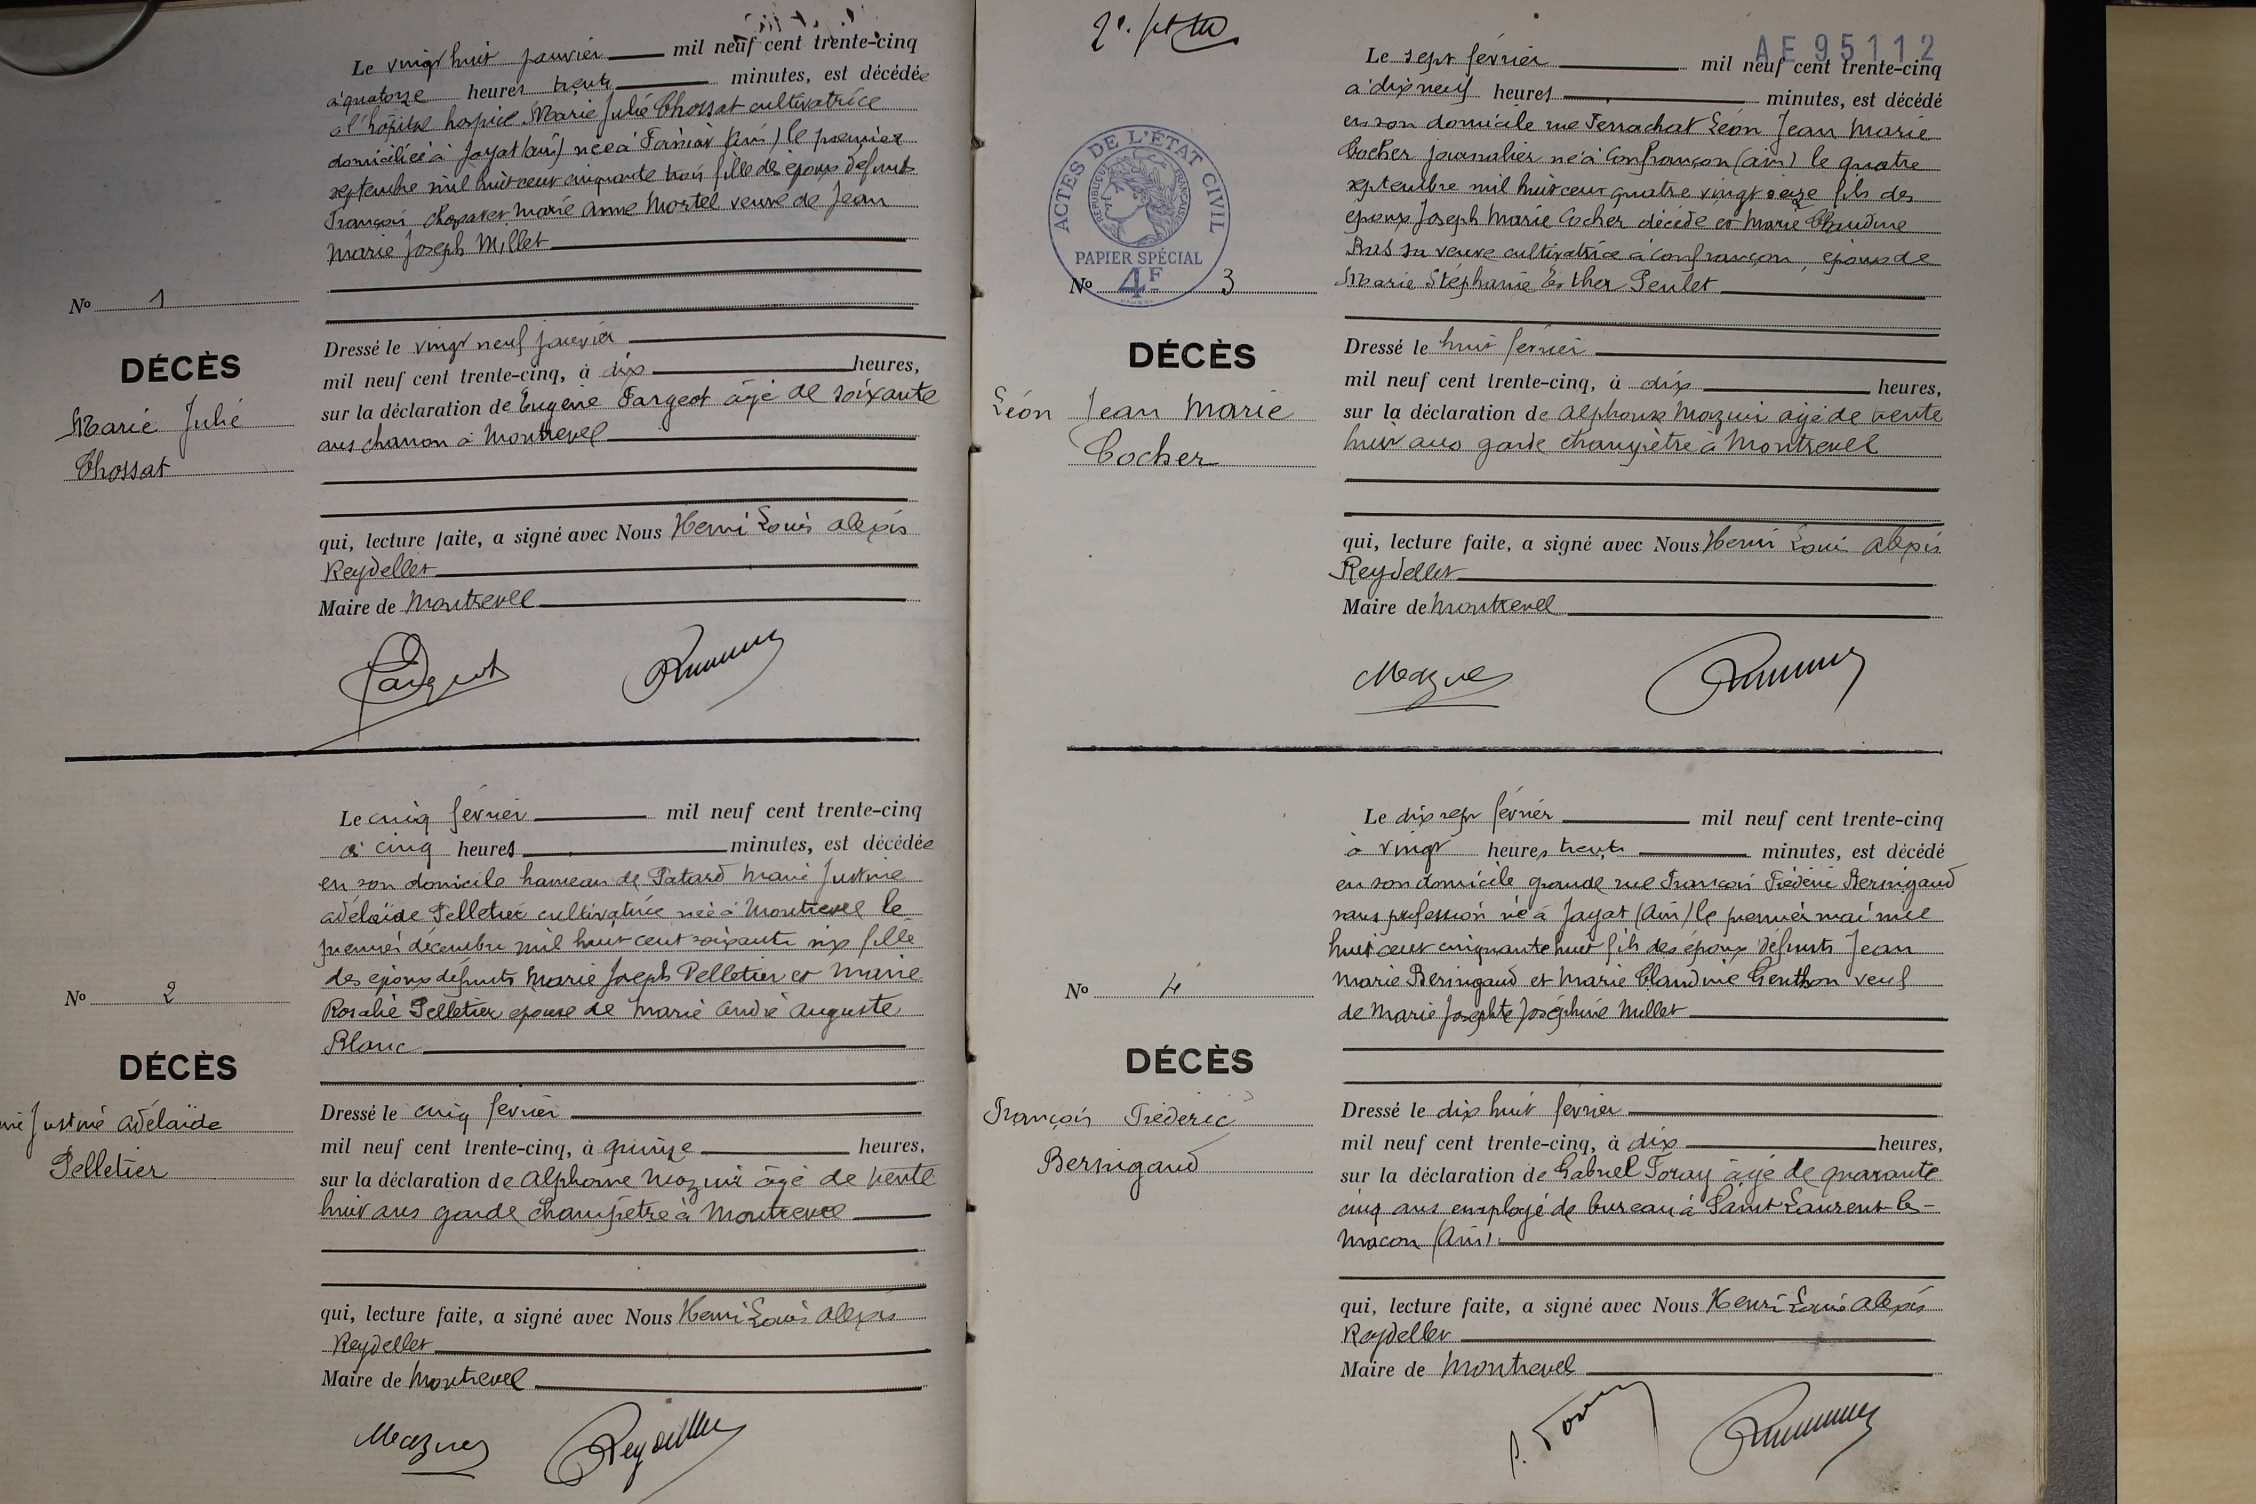 Le vingt huit janvier mil neuf cent trente-cinq
à quatorze heures trente minutes, est décédée
à l'hôpital hospice Marie Julie Chossat cultivatrice
domiciliée à Jayat (ain) née à Foissiat (ain) le premier
septembre mil huit cent cinquante trois fille des époux défunts
François Chossat et Marie Anne Mortel veuve de Jean
Marie Joseph Millet
No 1
DÉCÈS
Marie Julie
Chossat
Dressé le vingt neuf janvier
mil neuf cent trente-cinq, à dix heures,
sur la déclaration de Eugène Fargeot âgé de soixante
ans charron à Montrevel
qui, lecture faite, a signé avec Nous Henri Louis Alexis
Reydellet
Maire de Montrevel
Le cinq février mil neuf cent trente-cinq
à cinq heures minutes, est décédée
en son domicile hameau de Patard Marie Justine
Adélaïde Pelletier cultivatrice née à Montrevel le
premier décembre mil huit cent soixante six fille
des époux défunts Marie Joseph Pelletier et Marie
Rosalie Pelletier épouse de Marie André Auguste
Blanc
No 2
DÉCÈS
Justine Adélaïde
Pelletier
Dressé le cinq février
mil neuf cent trente-cinq, à quinze heures,
sur la déclaration de Alphonse Mazuir âgé de trente
huit ans garde champêtre à Montrevel
qui, lecture faite, a signé avec Nous Henri Louis Alexis
Reydellet
Maire de Montrevel
Reydellet
AE 95112
Le sept février mil neuf cent trente-cinq
à dix neuf heures minutes, est décédé
en son domicile rue Ferrachat Léon Jean Marie
Cocher journalier né à Confrançon (ain) le quatre
septembre mil huit cent quatre vingt seize fils des
époux Joseph Marie Cocher décédé et Marie Claudine
Bas sa veuve cultivatrice à Confrançon, époux de
Marie Stéphanie Esther Peulet
ACTES DE L'ÉTAT CIVIL
RÉPUBLIQUE FRANÇAISE
PAPIER SPÉCIAL
4F
No 3
DÉCÈS
Léon Jean Marie
Cocher
Dressé le huit février
mil neuf cent trente-cinq, à dix heures,
sur la déclaration de Alphonse Mazuir âgé de trente
huit ans garde champêtre à Montrevel
qui, lecture faite, a signé avec Nous Henri Louis Alexis
Reydellet
Maire de Montrevel
Le dix sept février mil neuf cent trente-cinq
à vingt heures trente minutes, est décédé
en son domicile grande rue François Frédéric Bernigaud
sans profession né à Jayat (Ain) le premier mai mil
huit cent cinquante huit fils des époux défunts Jean
Marie Bernigaud et Marie Claudine Genthon veuf
de Marie Josephte Joséphine Millet
No 4
DÉCÈS
François Frédéric
Bernigaud
Dressé le dix huit février
mil neuf cent trente-cinq, à dix heures,
sur la déclaration de Gabriel Foray âgé de quarante
cinq ans employé de bureau à Saint Laurent-les-
Macon (Ain)
qui, lecture faite, a signé avec Nous Henri Louis Alexis
Reydellet
Maire de Montrevel